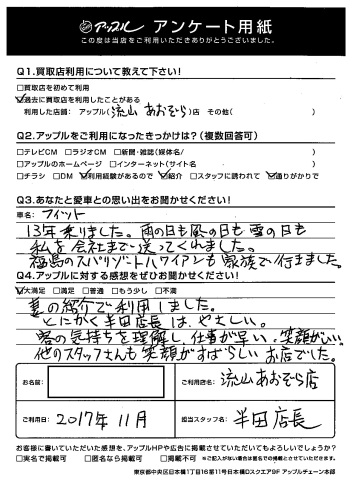 アップル アンケート用紙
この度は当店をご利用いただきありがとうございました。
Q1.買取店利用について教えて下さい!
□買取店を初めて利用
☑過去に買取店を利用したことがある
利用した店舗: アップル(流山あおぞら)店 その他( )
Q2.アップルをご利用になったきっかけは?(複数回答可)
□テレビCM □ラジオCM □新聞・雑誌(媒体名/ )
□アップルのホームページ □インターネット(サイト名 )
□チラシ □DM ☑利用経験があるので ☑紹介 □スタッフに誘われて ☑通りがかりで
Q3.あなたと愛車との思い出をお聞かせください!
車名: フィット
13年乗りました。雨の日も風の日も雪の日も
私を会社まで送ってくれました。
福島のスパリゾートハワイアンも家族で行きました。
Q4.アップルに対する感想をぜひお聞かせください!
☑大満足 □満足 □普通 □もう少し □不満
妻の紹介で利用しました。
とにかく半田店長は、やさしい。
客の気持ちを理解し、仕事が早い、笑顔がいい
他のスタッフさんも笑顔がすばらしいお店でした。
お名前:
ご利用店名: 流山あおぞら店
ご利用日: 2017年11月
担当スタッフ名: 半田店長
お客様に書いていただいた感想を、アップルHPや広告に掲載させていただいてもよろしいでしょうか?
□実名で掲載可 □匿名なら掲載可 □掲載不可 ※ご記入がない場合は匿名での掲載とさせていただきます。
東京都中央区日本橋1丁目16番11号日本橋Dスクエア9F アップルチェーン本部